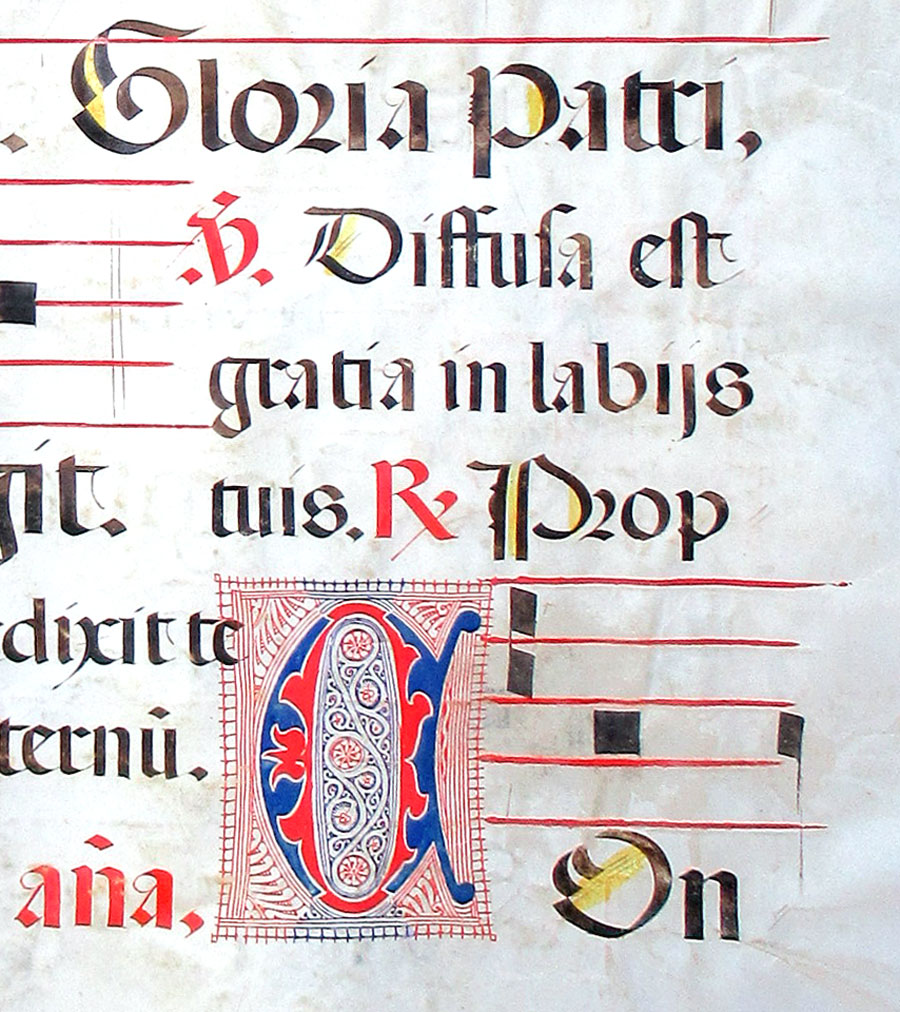 . Gloria Patri,
.V̈. Diffusa est
gratia in labijs
git. tuis. R̷ Prop
dixit te
ternū.
C On
an̄a,